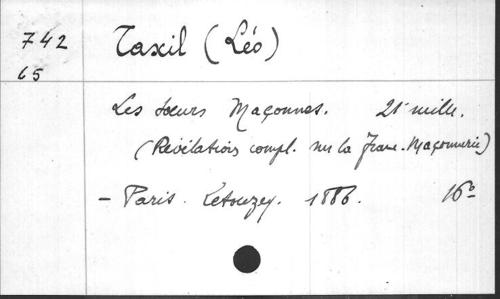 742 Taxil (Léo)
65
Les sœurs Maçonnes. 21e mille.
(Révélations compl. sur la Franc-Maçonnerie)
- Paris. Letouzey. 1886. 16º